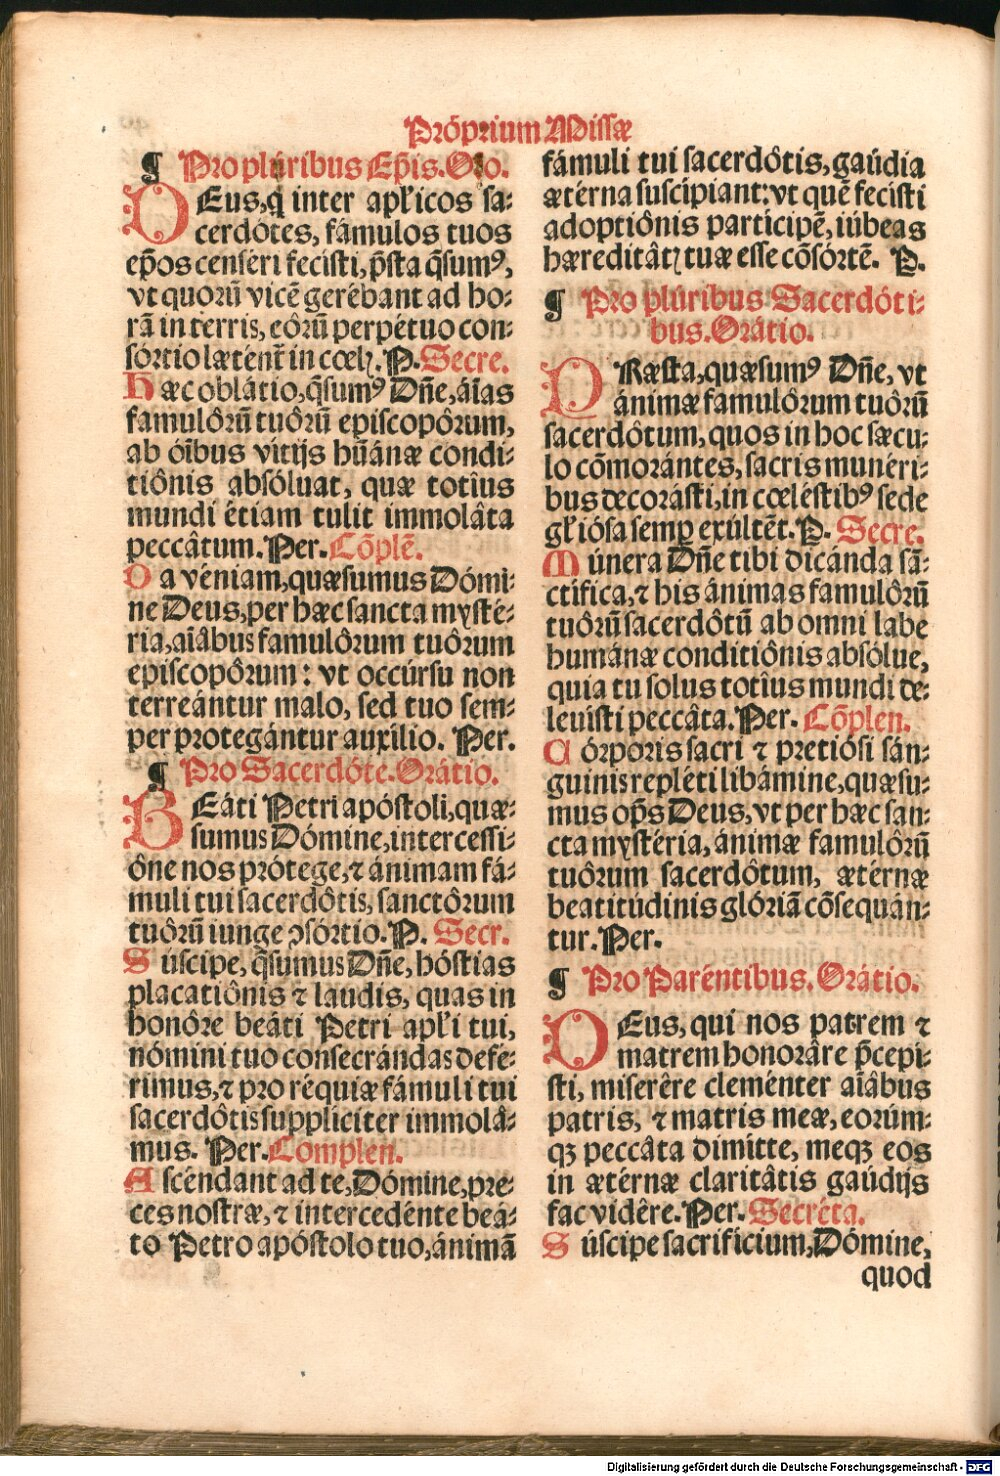 Próprium Missæ
¶ Pro plúribus Ep̄is. Oro.
DEus, q̇ inter apľicos sa⸗
cerdótes, fámulos tuos
ep̄os censéri fecisti, p̄sta q̄sumꝰ,
vt quorū vicē gerébant ad ho⸗
rā in terris, eôrū perpétuo con⸗
sórtio læténtr̄ in cœlꝭ. P. Secre.
Hæc oblátio, q̄sumꝰ Dn̄e, aı̄as
famulôrū tuôrū episcopôrum,
ab óı̄bus vítijs hūánæ condi⸗
tiônis absóluat, quæ totîus
mundi étiam tulit immolâta
peccâtum. Per. Cōplē.
Da véniam, quæsumus Dómi⸗
ne Deus, per hæc sancta mysté⸗
ria, aı̄âbus famulôrum tuôrum
episcopôrum: vt occúrsu non
terreántur malo, sed tuo sem⸗
per protegántur auxílio. Per.
¶ Pro Sacerdóte. Orátio.
BEáti Petri apóstoli, quæ⸗
sumus Dómine, intercessi⸗
ône nos prótege, ⁊ ánimam fá⸗
muli tui sacerdôtis, sanctôrum
tuôrū iunge ↄsórtio. P. Secr.
Súscipe, q̄sumus Dn̄e, hóstias
placatiônis ⁊ laudis, quas in
honôre beáti Petri apľi tui,
nómini tuo consecrándas defé⸗
rimus, ⁊ pro réquiæ fámuli tui
sacerdôtis supplíciter immolâ⸗
mus. Per. Complen.
Ascéndant ad te, Dómine, pre⸗
ces nostræ, ⁊ intercedénte beá⸗
to Petro apóstolo tuo, ánimā
fámuli tui sacerdôtis, gaúdia
ætérna suscípiant: vt quē fecisti
adoptiônis partícipē, iúbeas
hæreditâtꝭ tuæ esse cōsórtē. P.
¶ Pro plúribus Sacerdóti⸗
bus. Orátio.
PRæsta, quæsumꝰ Dn̄e, vt
ánimæ famulôrum tuôrū
sacerdôtum, quos in hoc sæcu⸗
lo cōmorántes, sacris munéri⸗
bus decorásti, in cœléstibꝰ sede
gľiósa semꝑ exúltēt. P. Secre.
Múnera Dn̄e tibi dicánda sā⸗
ctífica, ⁊ his ánimas famulôrū
tuôrū sacerdôtū ab omni labe
humánæ conditiônis absólue,
quia tu solus totîus mundi de⸗
leuísti peccâta. Per. Cōplen.
Córporis sacri ⁊ pretiósi sán⸗
guinis repléti libámine, quæsu⸗
mus op̄s Deus, vt per hæc san⸗
cta mystéria, ánimæ famulôrū
tuôrum sacerdôtum, ætérnæ
beatitúdinis glóriā cōsequán⸗
tur. Per.
¶ Pro Paréntibus. Orátio.
DEus, qui nos patrem ⁊
matrem honorâre p̄cepi⸗
sti, miserére cleménter aı̄âbus
patris, ⁊ matris meæ, eorúm⸗
qꝫ peccâta dimitte, meqꝫ eos
in ætérnæ claritâtis gaúdijs
fac vidêre. Per. Secréta.
Súscipe sacrificium, Dómine,
quod
Digitalisierung gefördert durch die Deutsche Forschungsgemeinschaft - DFG